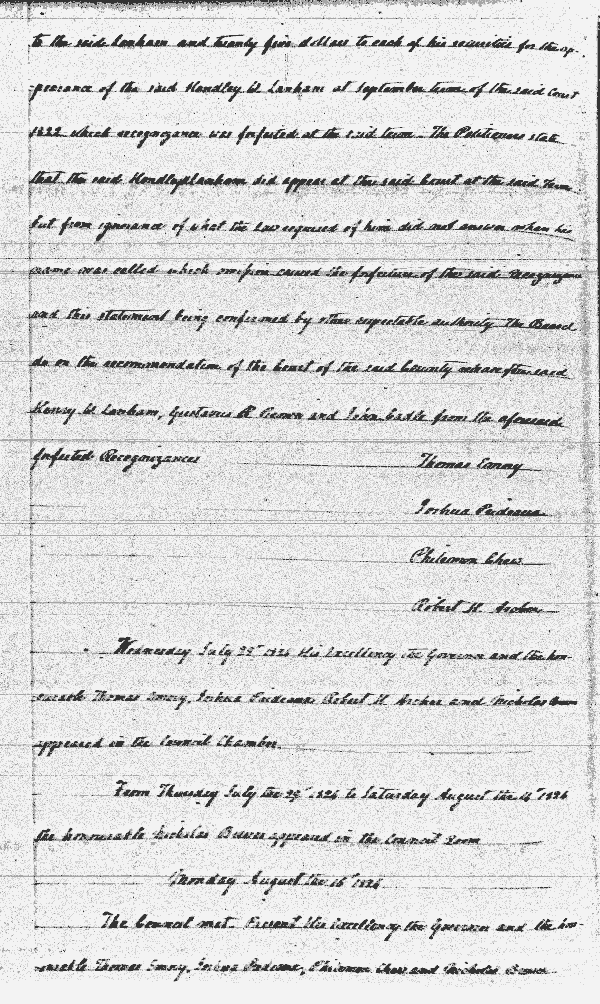 to the said Lanham and twenty five dollars to each of his securities for the ap-
-pearance of the said Hendley W Lanham at September term of the said Court
1822 which recognizance was forfeited at the said term. The Petitioners state
that the said Hendley Lanham did appear at the said Court at the said Term
but from ignorance of what the Law required of him did not answer when his
name was called which omission caused the forfeiture of the said Recognizance
and this statement being confirmed by other respectable authority The Board
do on the recommendation of the Court of the said County release the said
W Lanham, Gustavus R Brown and John Eadle from the aforesaid
forfeited Recognizances
Thomas Emory
Joshua Prideaux
Philemon Chew
Robert H. Archer
Wednesday July His Excellency the Governor and the hon-
-ourable Thomas Emory, Joshua Prideaux Robert H Archer and Nicholas Brewer
appeared in the Council Chamber.
From Thursday July the 1826 to Saturday August the 1826
the honourable Nicholas Brewer appeared in the Council Room
Monday August the 16th 1826
The Council met. Present His Excellency the Governor and the hon-
-ourable Thomas Emory, Joshua Prideaux, Philemon Chew and Nicholas Brewer